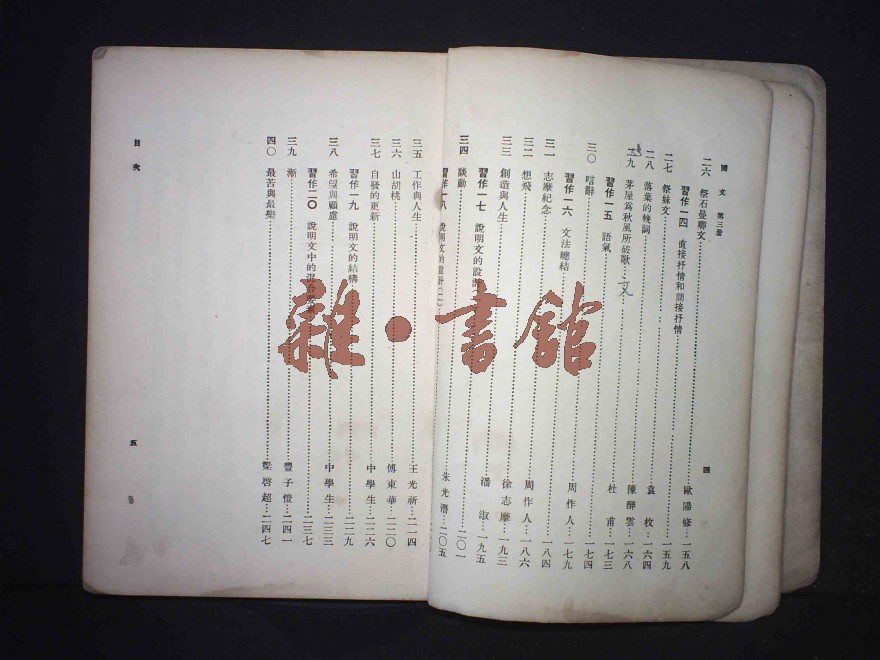 國文 第三册 四
二六 祭石曼卿文……歐陽修…一五八
習作一四 直接抒情和間接抒情……一五九
二七 祭妹文……袁枚…一六四
二八 落葉的輓詞……陳醉雲…一六八
二九 茅屋爲秋風所破歌……杜甫…一七三
文
習作一五 語氣……一七四
三〇 辭……周作人…一七九
習作一六 文法總結……一八四
三一 志摩紀念……周作人…一八六
三二 想飛……徐志摩…一九三
三三 創造與人生……潘淑…一九五
習作一七 說明文的設計……二〇一
三四 談動……朱光潛…二〇五
習作一八 說明文的設計(二)……
三五 工作與人生……王光祈…二一四
三六 山胡桃……傅東華…二二〇
三七 自發的更新……中學生…二二六
習作一九 說明文的結構……二二九
三八 希望與顧慮……中學生…二三三
習作二〇 說明文中的混合……二三七
三九 漸……豐子愷…二四一
四〇 最苦與最樂……梁啓超…二四七
目次 五
雜·書館